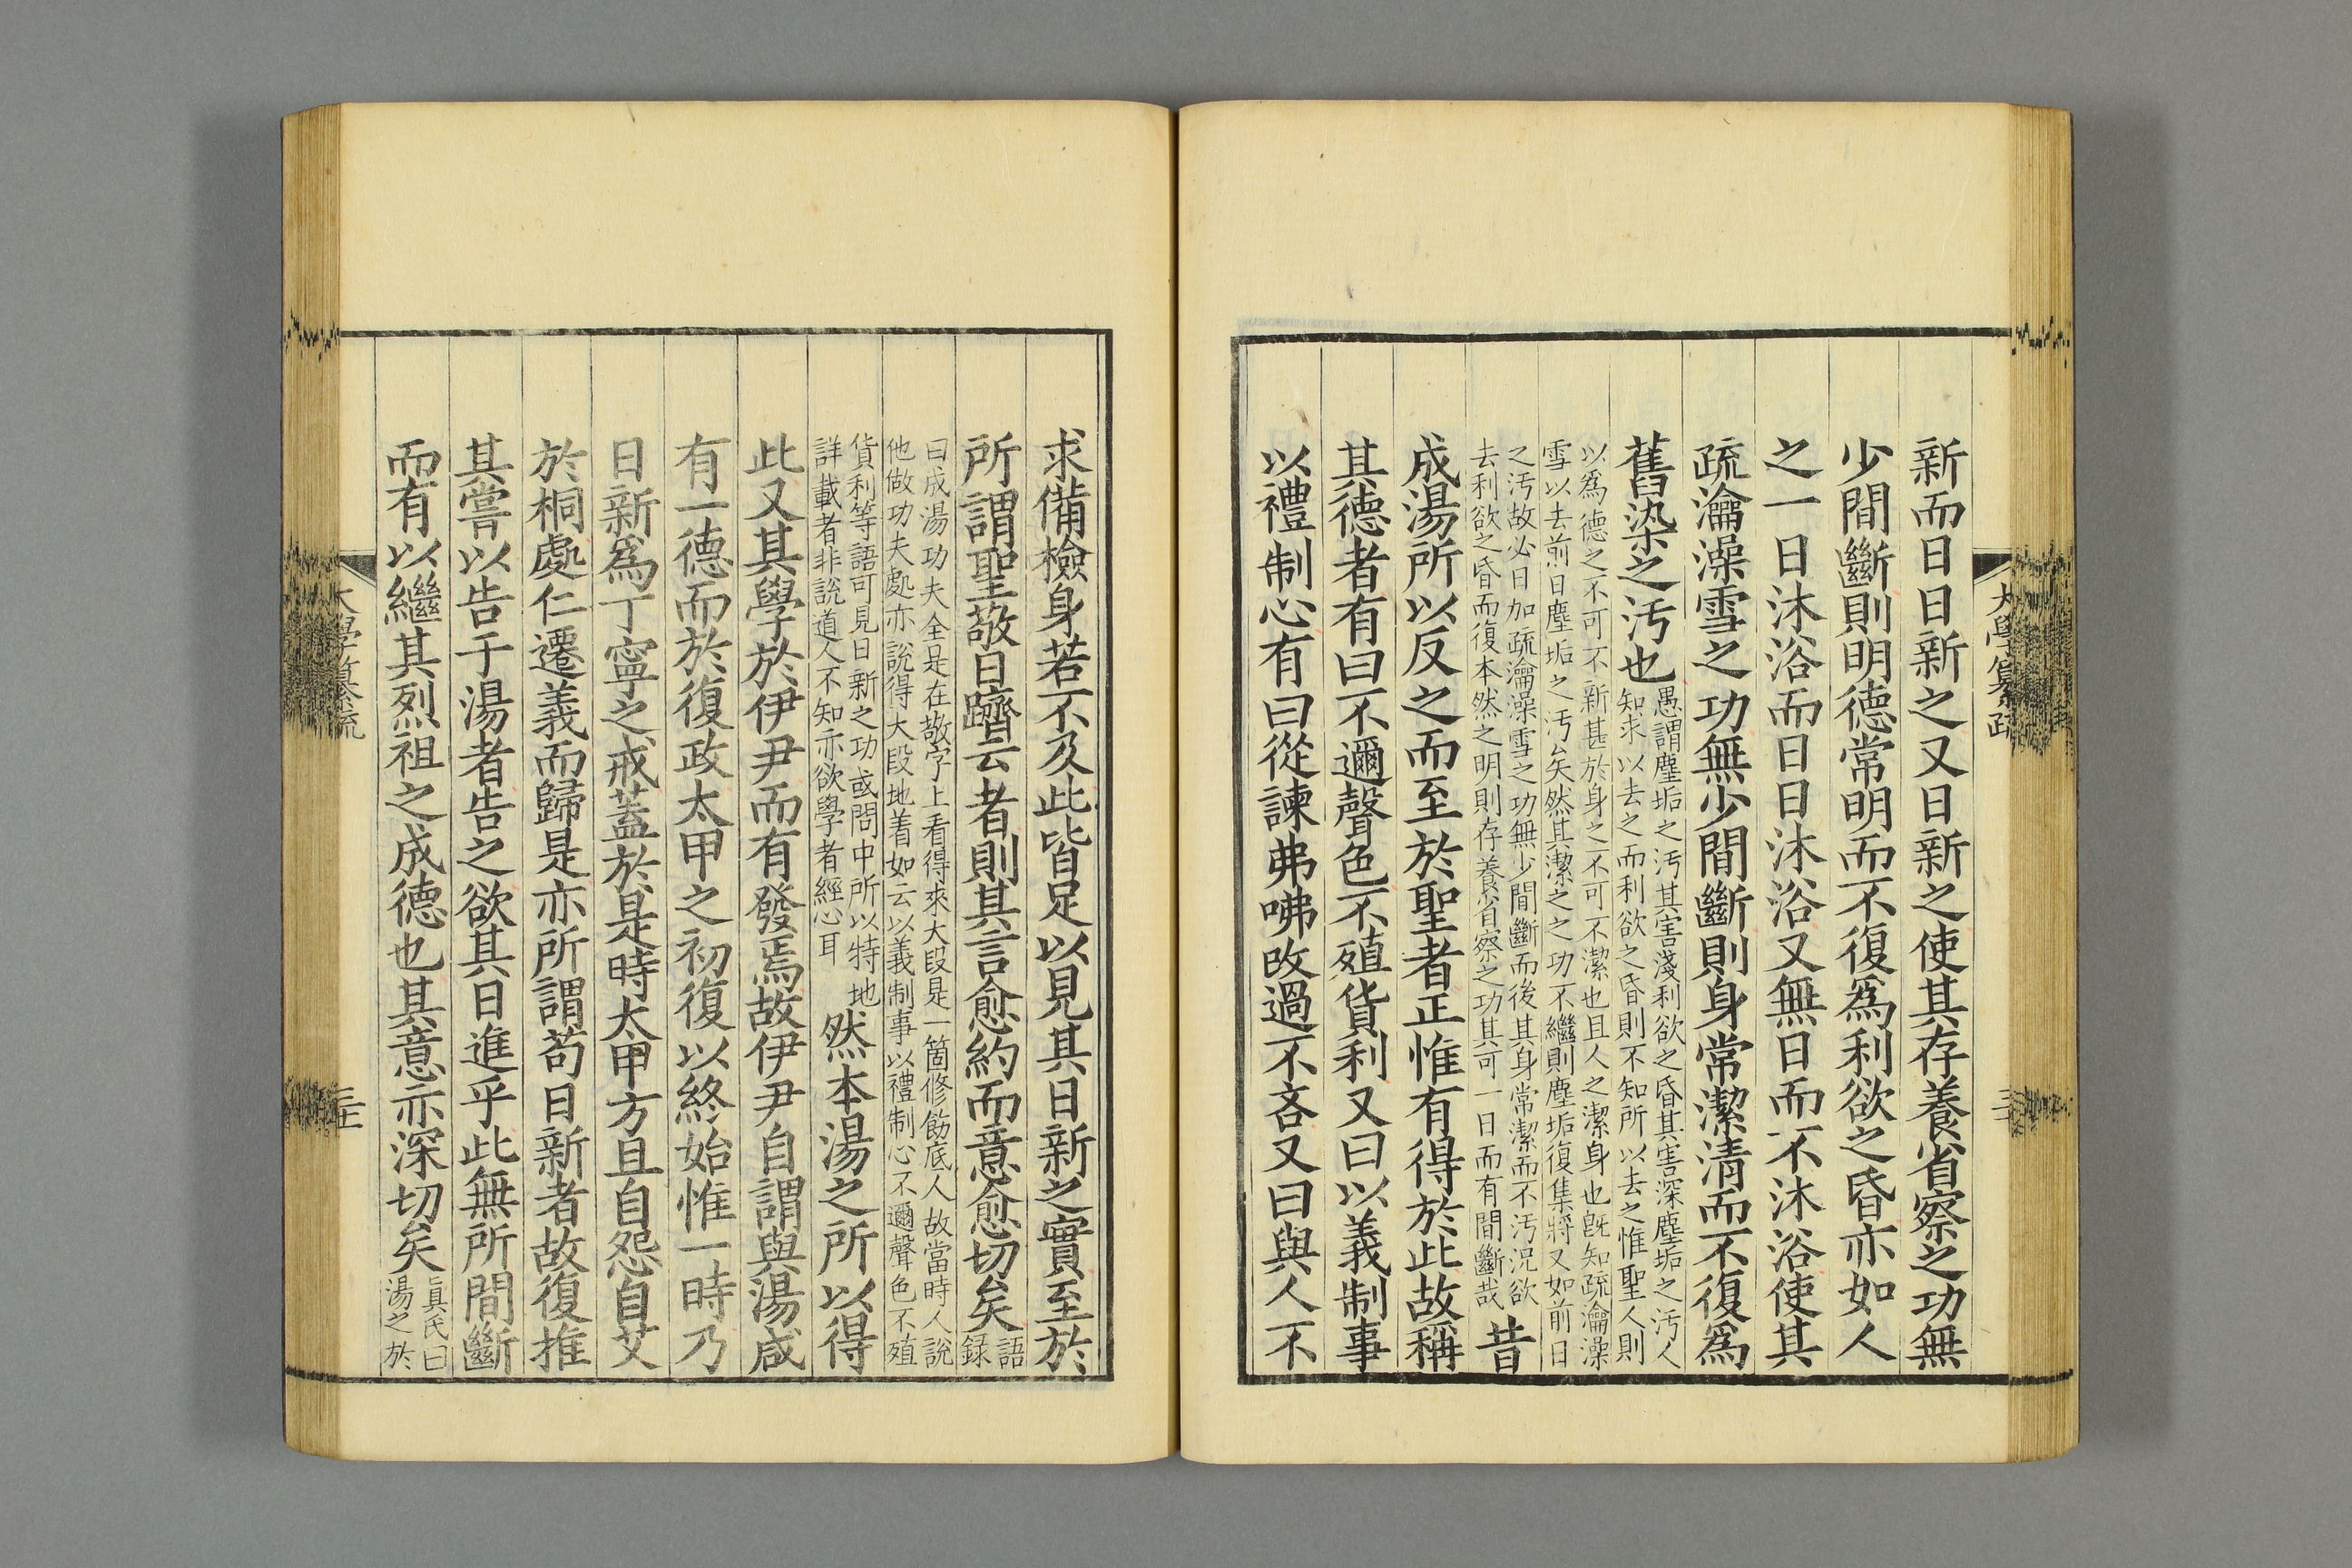 大學纂疏
新而日日新之又日新之使其存養省察之功無
少間斷則明德常明而不復爲利欲之昏亦如人
之一日沐浴而日日沐浴又無日而不沐浴使其
疏瀹澡雪之功無少間斷則身常潔清而不復爲
舊染之汚也
愚謂塵垢之汚其害淺利欲之昏其害深塵垢之汚人
知求以去之而利欲之昏則不知所以去之惟聖人則
以爲德之不可不新甚於身之不可不潔也且人之潔身也旣知疏瀹澡
雪以去前日塵垢之汚矣然其潔之之功不繼則塵垢復集將又如前日
之汚故必日加疏瀹澡雪之功無少間斷而後其身常潔而不汚況欲
去利欲之昏而復本然之明則存養省察之功其可一日而有間斷哉
昔
成湯所以反之而至於聖者正惟有得於此故稱
其德者有曰不邇聲色不殖貨利又曰以義制事
以禮制心有曰從諫弗咈改過不吝又曰與人不
求備檢身若不及此皆足以見其日新之實至於
所謂聖敬日躋云者則其言愈約而意愈切矣
語
錄
曰成湯功夫全是在敬字上看得來大段是一箇修飭底人故當時人說
他做功夫處亦說得大段地着如云以義制事以禮制心不邇聲色不殖
貨利等語可見日新之功或問中所以特地
詳載者非說道人不知亦欲學者經心耳
然本湯之所以得
此又其學於伊尹而有發焉故伊尹自謂與湯咸
有一德而於復政太甲之初復以終始惟一時乃
日新爲丁寧之戒蓋於是時太甲方且自怨自艾
於桐處仁遷義而歸是亦所謂苟日新者故復推
其嘗以告于湯者告之欲其日進乎此無所間斷
而有以繼其烈祖之成德也其意亦深切矣
眞氏曰
湯之於